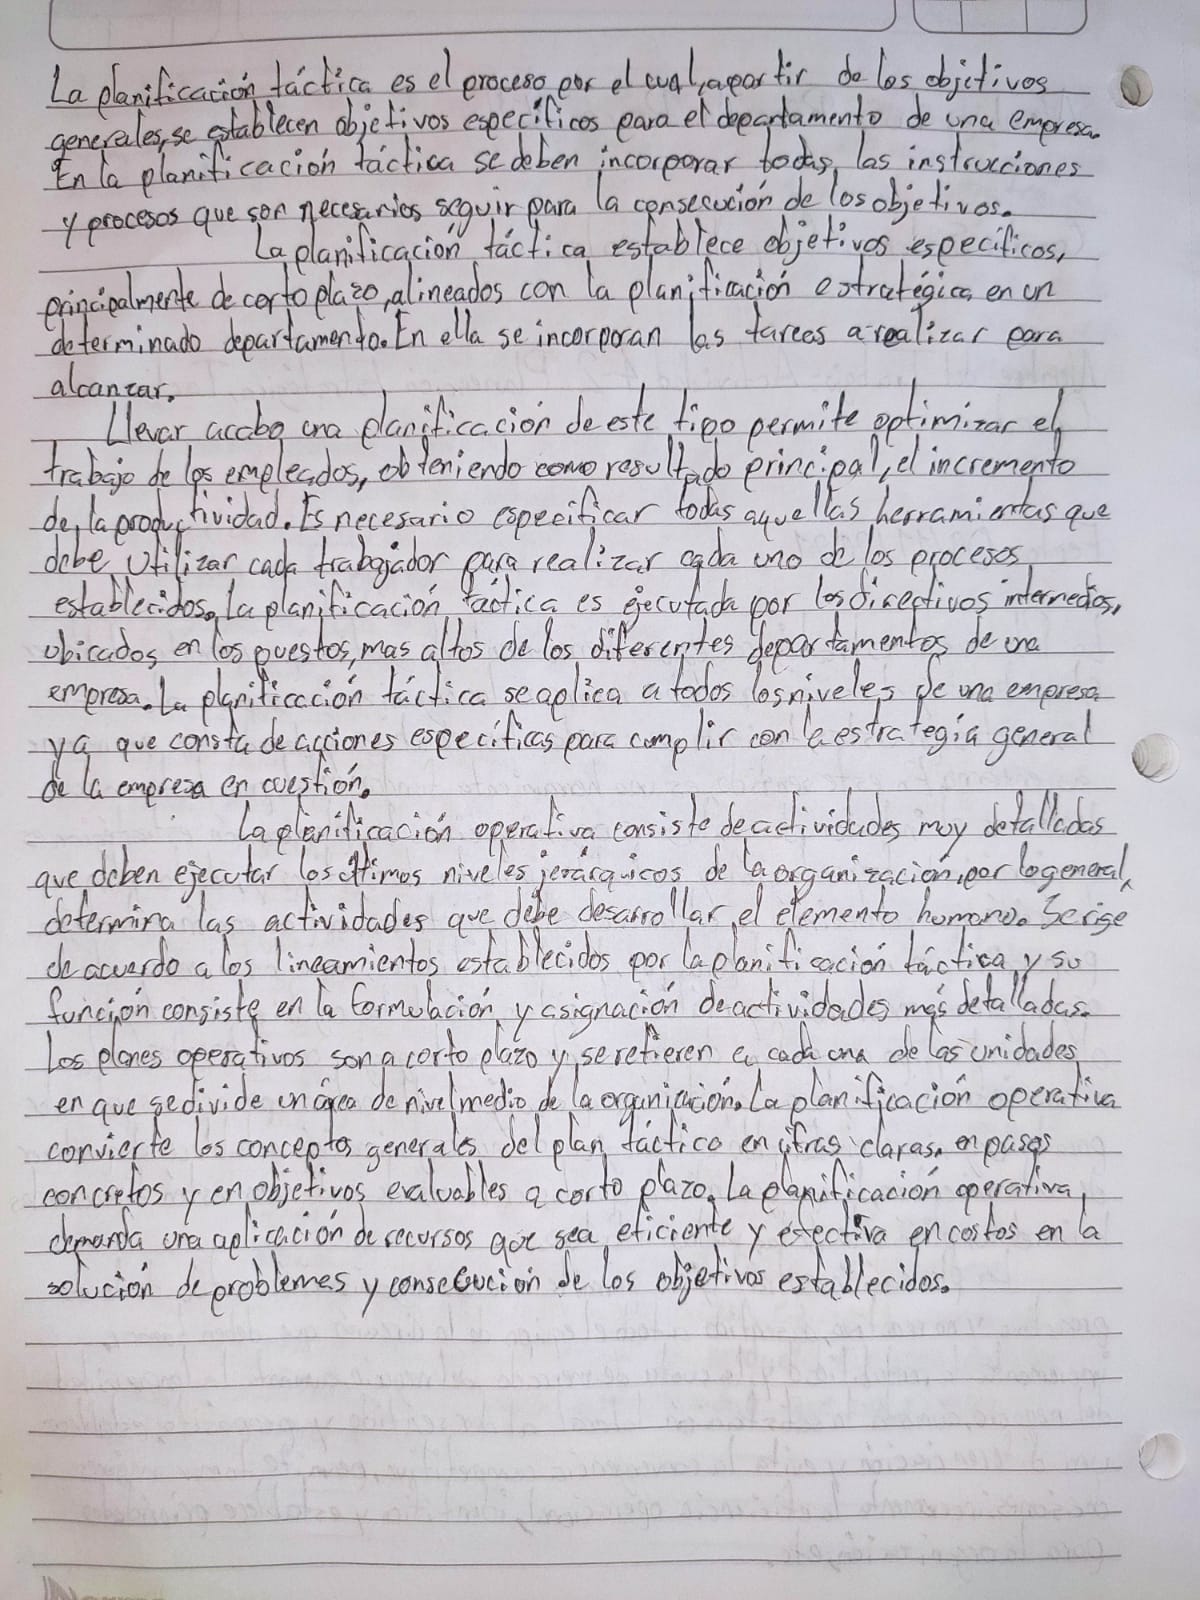 La planificación táctica es el proceso por el cual, apartir de los objetivos
generales, se establecen objetivos específicos para el departamento de una empresa.
En la planificación táctica se deben incorporar todas las instrucciones
y procesos que son necesarios seguir para la consecución de los objetivos.
La planificación táctica establece objetivos específicos,
principalmente de corto plazo, alineados con la planificación estratégica en un
determinado departamento. En ella se incorporan las tareas a realizar para
alcanzar.
Llevar acabo una planificación de este tipo permite optimizar el
trabajo de los empleados, obteniendo como resultado principal, el incremento
de la productividad. Es necesario especificar todas aquellas herramientas que
debe utilizar cada trabajador para realizar cada uno de los procesos
establecidos. La planificación táctica es ejecutada por los directivos intermedios,
ubicados en los puestos mas altos de los diferentes departamentos de una
empresa. La planificación táctica se aplica a todos los niveles de una empresa
ya que consta de acciones específicas para cumplir con la estrategia general
de la empresa en cuestión.
La planificación operativa consiste de actividades muy detalladas
que deben ejecutar los últimos niveles jerárquicos de la organización, por lo general,
determina las actividades que debe desarrollar el elemento humano. Se rige
de acuerdo a los lineamientos establecidos por la planificación táctica y su
función consiste en la formulación y asignación de actividades más detalladas.
Los planes operativos son a corto plazo y se refieren a cada una de las unidades
en que se divide un área de nivel medio de la organización. La planificación operativa
convierte los conceptos generales del plan táctico en cifras claras, en pasos
concretos y en objetivos evaluables a corto plazo. La planificación operativa
demanda una aplicación de recursos que sea eficiente y efectiva en costos en la
solución de problemas y consecución de los objetivos establecidos.